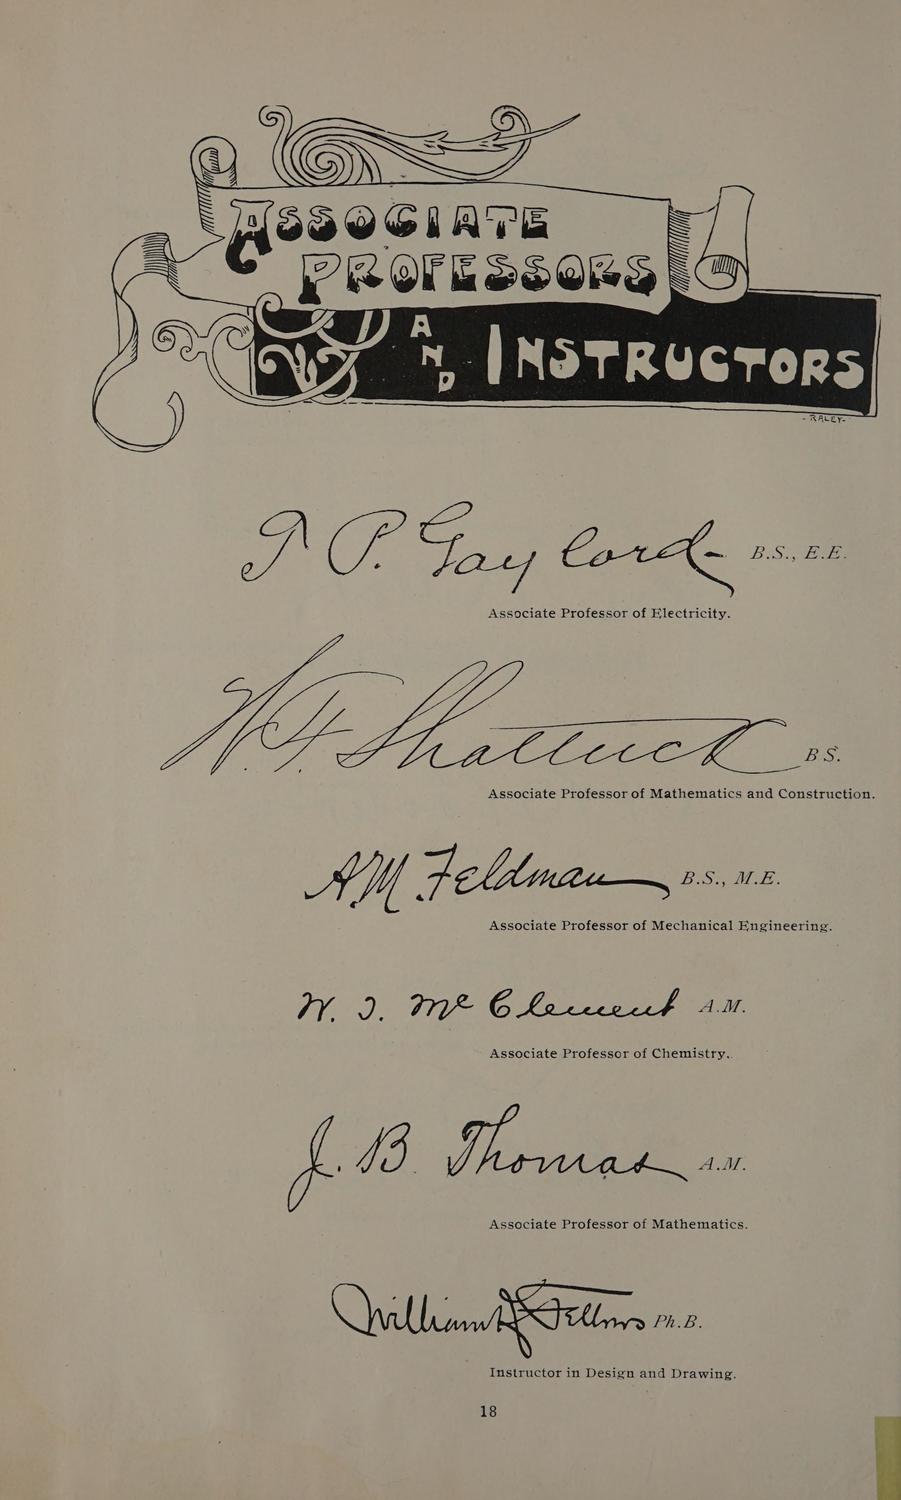 ASSOCIATE
PROFESSORS
AND INSTRUCTORS
-RALEY-
T P. Gaylord B.S., E.E.
Associate Professor of Electricity.
W. F. Shattuck B S.
Associate Professor of Mathematics and Construction.
AM Feldman B.S., M.E.
Associate Professor of Mechanical Engineering.
W. T. McClement A.M.
Associate Professor of Chemistry.
J. B. Thomas A.M.
Associate Professor of Mathematics.
William Fellows Ph.B.
Instructor in Design and Drawing.
18